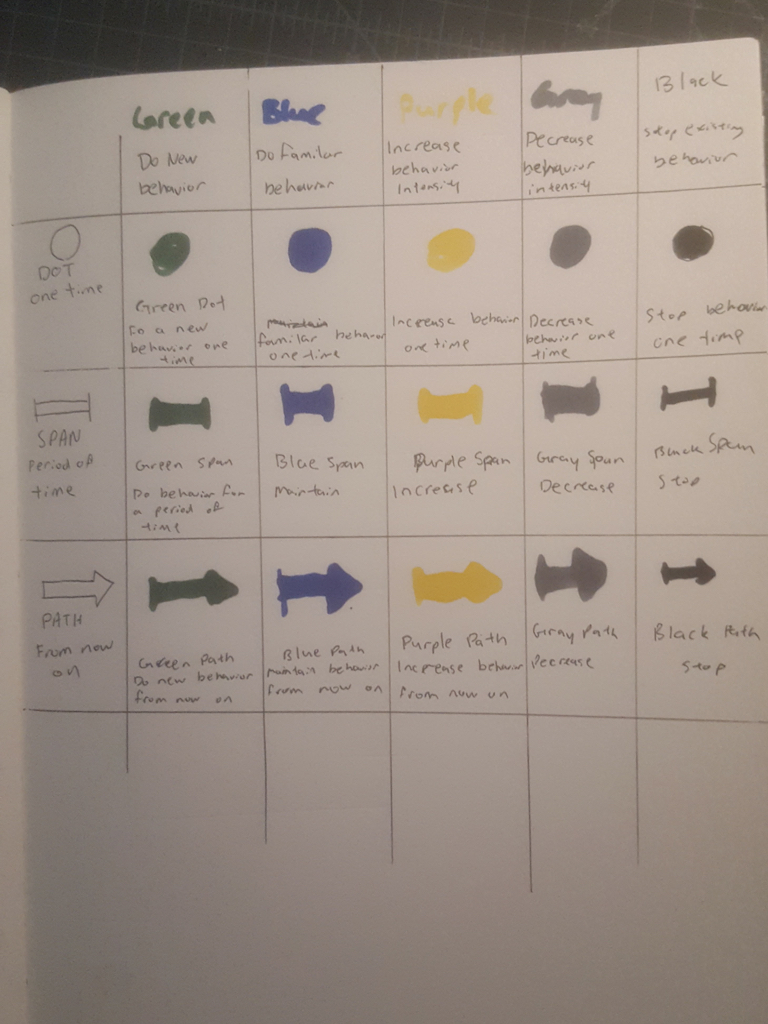 Green
Blue
Purple
Gray
Black
Do New
behavior
Do Familar
behavior
Increase
behavior
Intensity
Decrease
behavior
intensity
stop existing
behavior
DOT
one time
Green Dot
Do a new
behavior one
time
maintain
familar behavior
one time
Increase behavior
one time
Decrease
behavior one
time
Stop behavior
one time
SPAN
Period of
time
Green Span
Do behavior for
a period of
time
Blue Span
maintain
Purple Span
Increase
Gray Span
Decrease
Black Span
Stop
PATH
From now
on
Green Path
Do new behavior
from now on
Blue Path
maintain behavior
from now on
Purple Path
Increase behavior
from now on
Gray Path
Decrease
Black Path
Stop